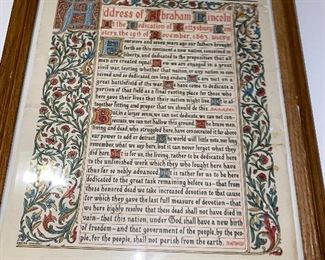 Address of Abraham Lincoln
At the Dedication of Gettysburg
Cemetery, the 19th of November, 1863.
Fourscore and seven years ago our fathers brought
forth on this continent a new nation, conceived in
liberty, and dedicated to the proposition that all
men are created equal. Now we are engaged in a great
civil war, testing whether that nation, or any nation so con-
ceived and so dedicated, can long endure. We are met on a
great battlefield of the war. We have come to dedicate a
portion of that field as a final resting place for those who
here gave their lives that their nation might live. It is al-
together fitting and proper that we should do this.
But in a larger sense, we can not dedicate, we can not con-
secrate, we can not hallow this ground. The brave men,
living and dead, who struggled here, have consecrated it far above
our power to add or detract. The world will little note, nor long
remember, what we say here, but it can never forget what they
did here. It is for us, the living, rather to be dedicated here
to the unfinished work which they who fought here have
thus far so nobly advanced. It is rather for us to be here
dedicated to the great task remaining before us – that from
these honored dead we take increased devotion to that cause
for which they gave the last full measure of devotion – that
we here highly resolve that these dead shall not have died in
vain – that this nation, under God, shall have a new birth
of freedom – and that government of the people, by the peo-
ple, for the people, shall not perish from the earth.